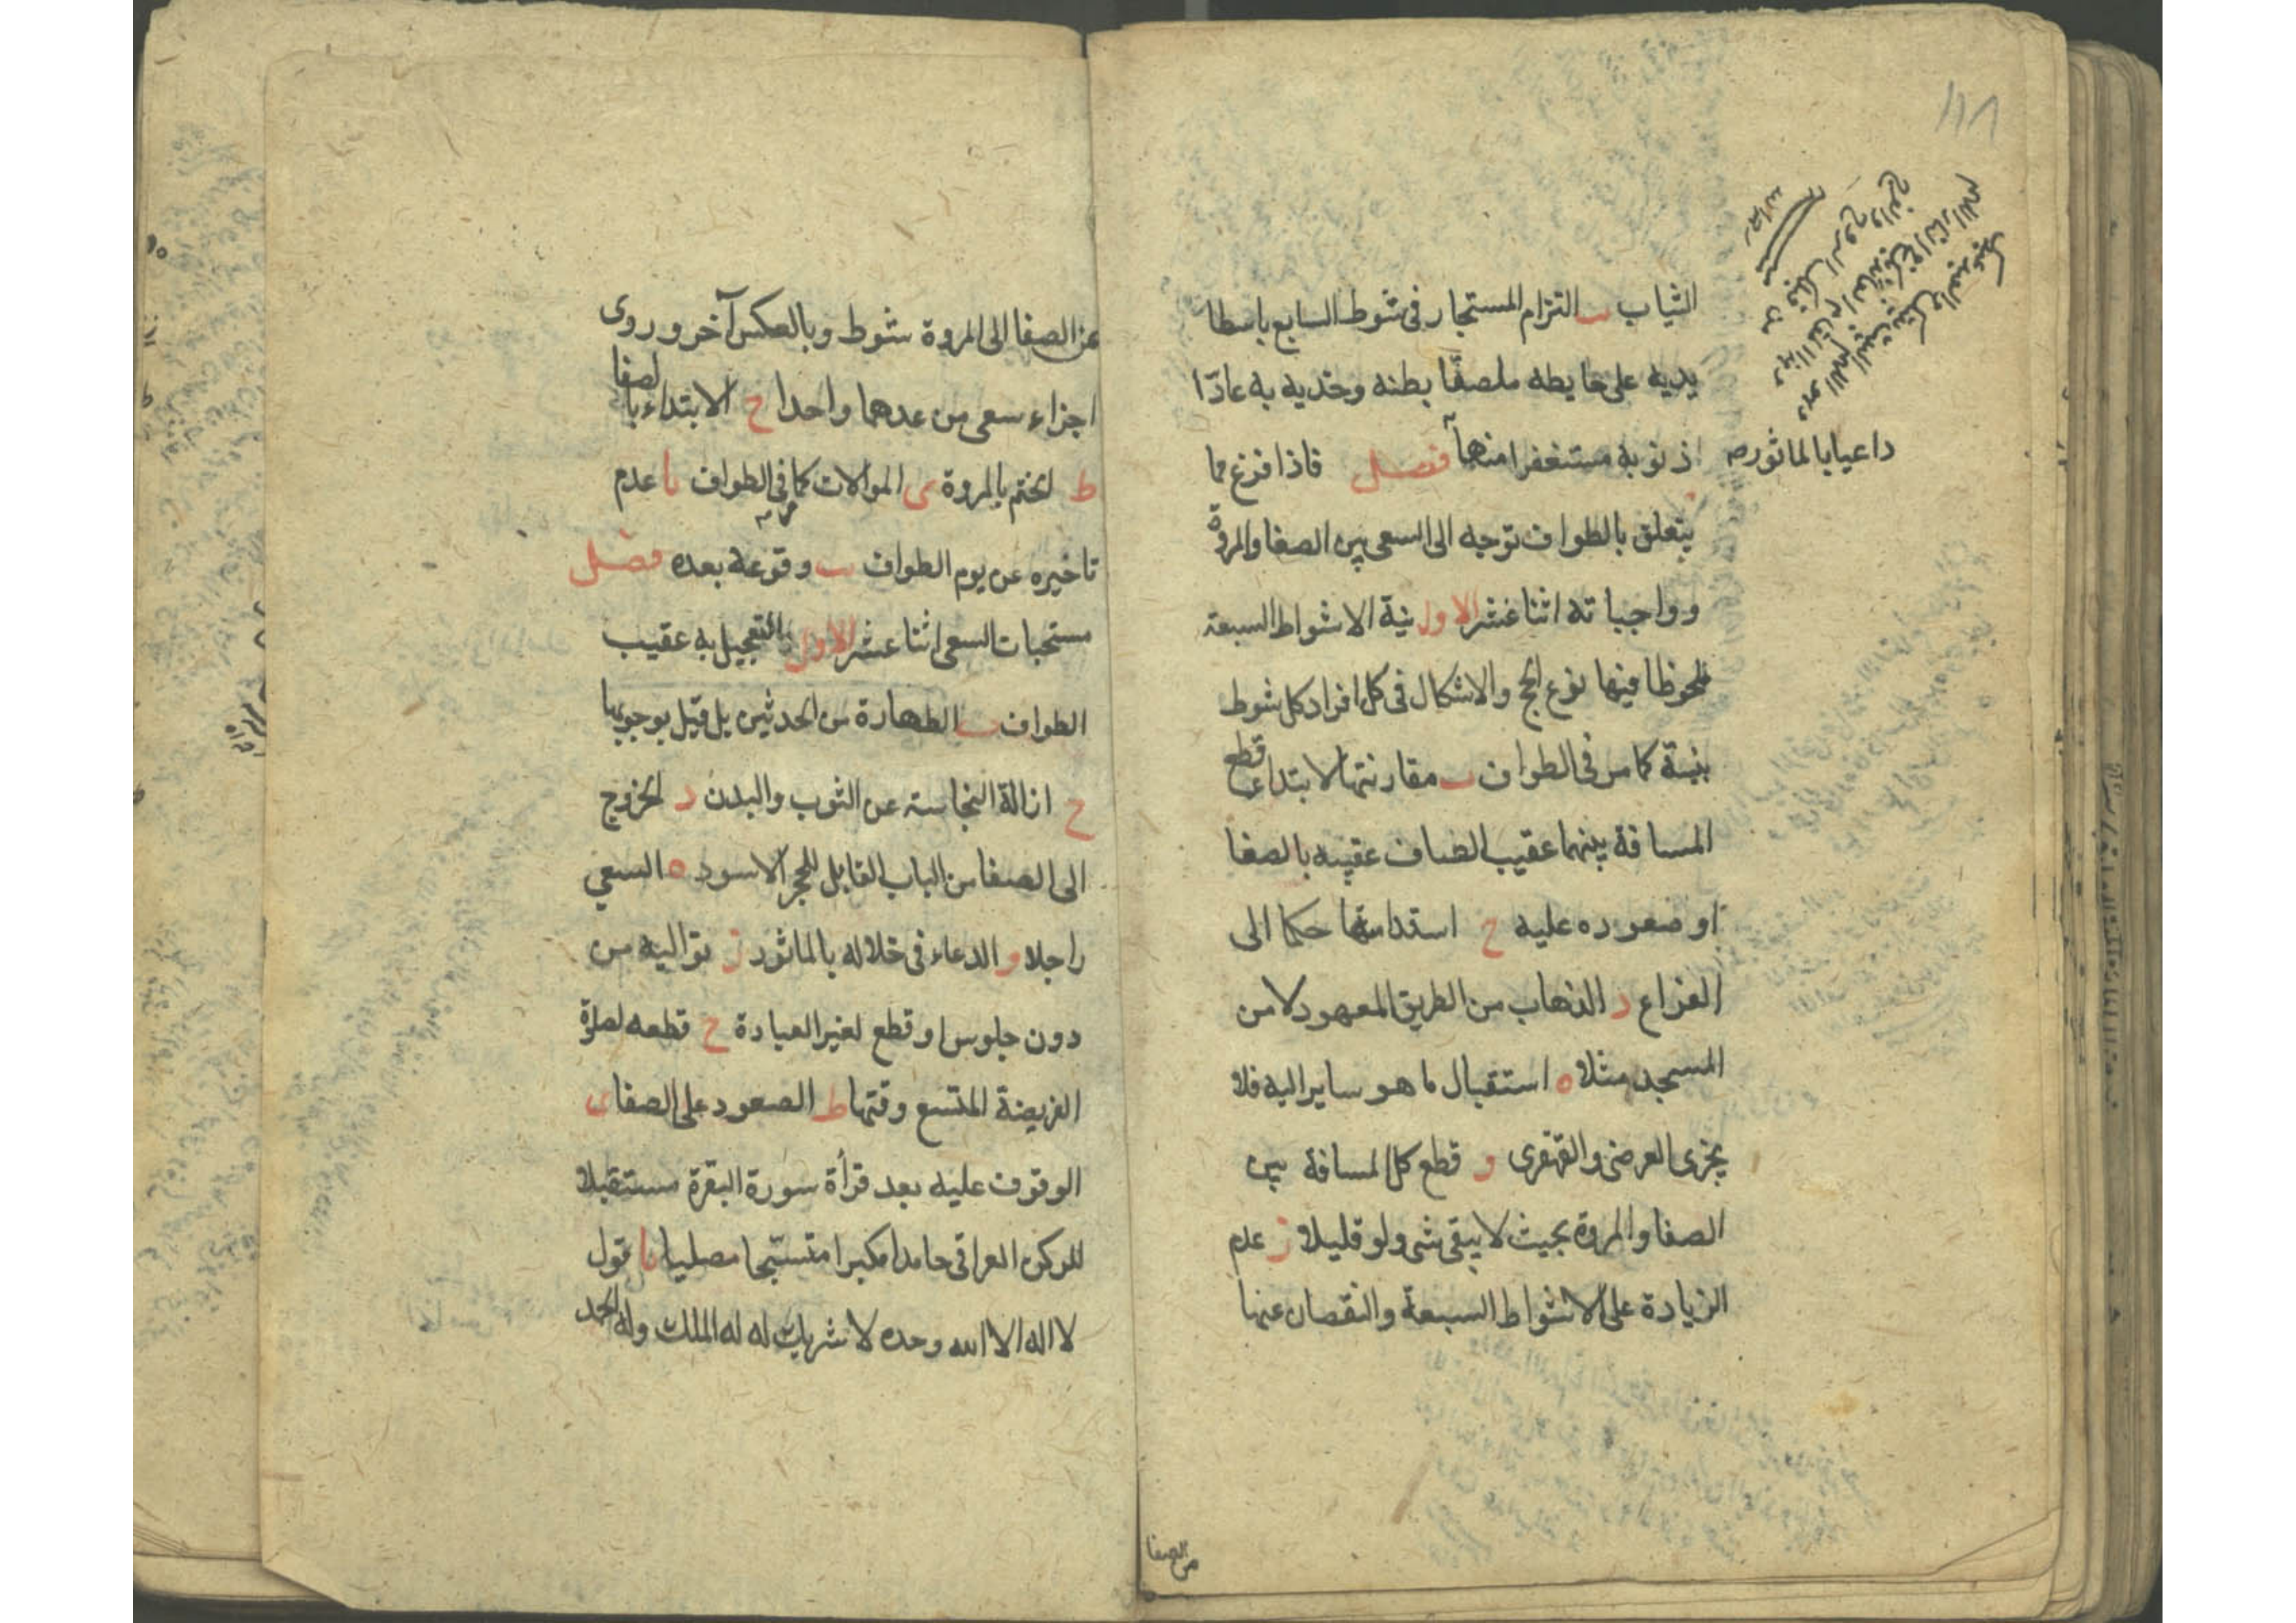 ١١٨
اللهم البيت بيتك والعبد عبدك
وهذا مقام العائذ بك من النار اللهم
من قبلك الروح والفرج
الثياب ب التزام المستجار فى شوط السابع باسطا
يديه على حايطه ملصقا بطنه وخديه به عادّا
ذنوبه مستغفرا منها فصل فاذا فرغ مما
داعيا بالماثور صح
يتعلق بالطواف توجه الى السعى بين الصفا والمروة
وواجباته اثنا عشر الاول نية الاشواط السبعة
ملحوظا فيها نوع الحج والاشكال فى كل افراد كل شوط
بنية كما مر فى الطواف ب مقارنتها لابتداء قطع
المسافة بينهما عقيب الصاق عقيبه بالصفا
او صعوده عليه ح استدامتها حكما الى
الفراغ د الذهاب من الطريق المعهود لا من
المسجد مثلا ه استقبال ما هو ساير اليه فلا
يجزى العرضى والقهقرى و قطع كل المسافة بين
الصفا والمروة بحيث لا يبقى شى ولو قليلا ز عدم
الزيادة على الاشواط السبعة والنقصان عنها
من الصفا
من الصفا الى المروة شوط وبالعكس آخر وروى
اجزاء سعى من عدهما واحدا ح الابتداء بالصفا
ط الختم بالمروة ى الموالات كما مر فى الطواف يا عدم
تاخيره عن يوم الطواف يب وقوعه بعده فصل
مستحبات السعى اثنا عشر الاول التعجيل به عقيب
الطواف ب الطهارة من الحدثين بل قيل بوجوبها
ح ازالة النجاسة عن الثوب والبدن د الخروج
الى الصفا من الباب المقابل للحجر الاسود ه السعي
راجلا و الدعاء فى خلاله بالماثور ز تواليه من
دون جلوس او قطع لغير العبادة ح قطعه لصلوة
الفريضة المتسع وقتها ط الصعود على الصفا ى
الوقوف عليه بعد قرأة سورة البقرة مستقبلا
للركن العراقى حامدا مكبرا متسبحا مصليا يا قول
لا اله الا الله وحده لا شريك له له الملك وله الحمد